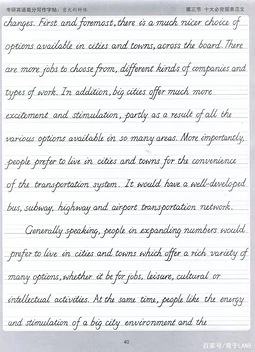 考研英语高分写作字帖：意大利斜体
第三节 十大必背图表范文
changes. First and foremost, there is a much richer choice of
options available in cities and towns, across the board. There
are more jobs to choose from, different kinds of companies and
types of work. In addition, big cities offer much more
excitement and stimulation, partly as a result of all the
various options available in so many areas. More importantly,
people prefer to live in cities and towns for the convenience
of the transportation system. It would have a well-developed
bus, subway, highway and airport transportation network.
Generally speaking, people in expanding numbers would
prefer to live in cities and towns which offer a rich variety of
many options, whether it be for jobs, leisure, cultural or
intellectual activities. At the same time, people like the energy
and stimulation of a big city environment and the
40